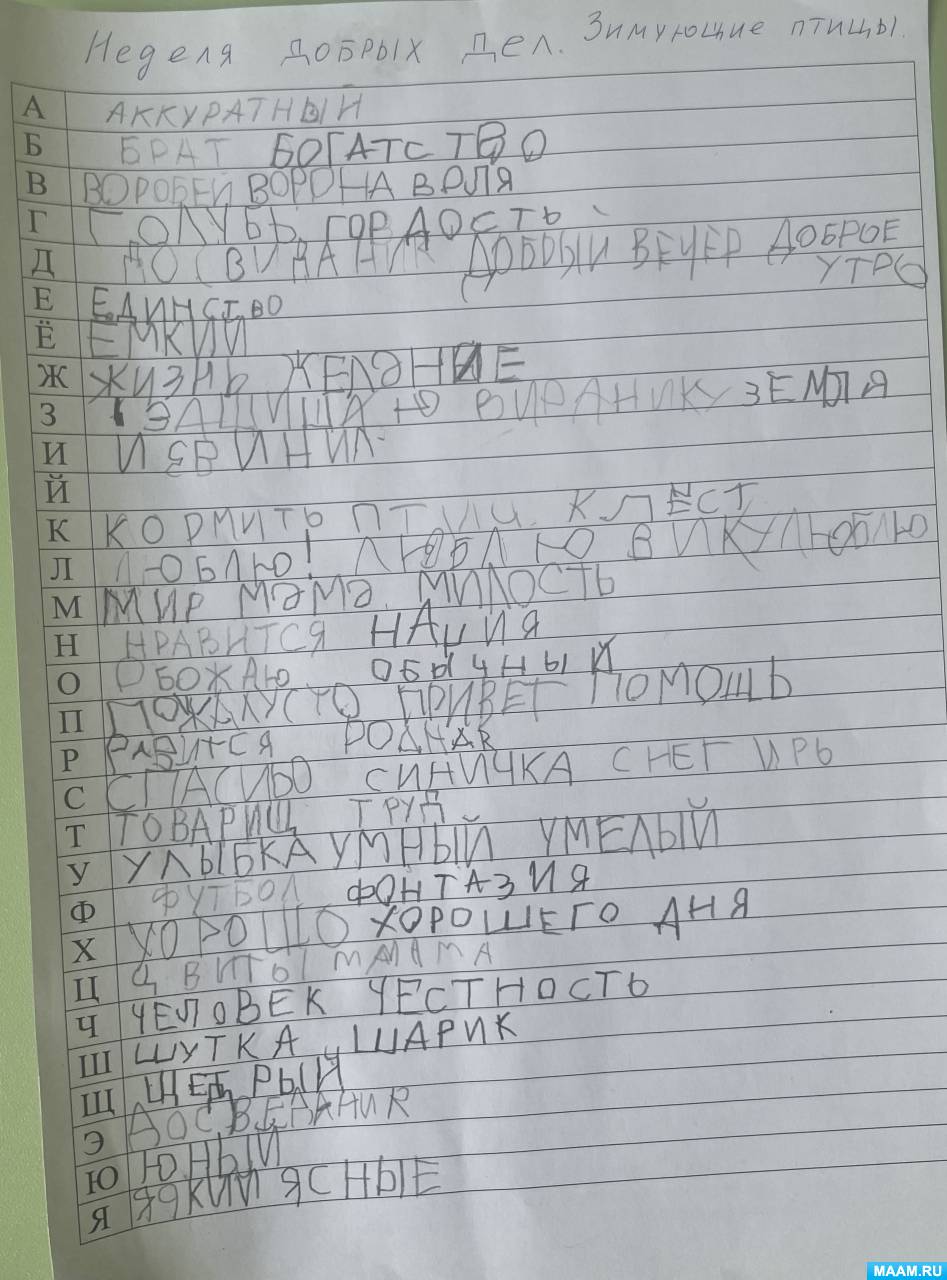 Неделя добрых дел. Зимующие птицы.
А АККУРАТНЫЙ
Б БРАТ БОГАТСТВО
В ВОРОБЕЙ ВОРОНА ВОЛЯ
Г ГОЛУБЬ, ГОРДОСТЬ
Д ДОСВИДАНИЯ ДОБРЫЙ ВЕЧЕР ДОБРОЕ
УТРО
Е ЕДИНСТВО
Ё ЕМКИЙ
Ж ЖИЗНЬ ЖЕЛАНИЕ
З ЗАЩИЩАЮ ЗЕМЛЯ
И
Й
К КОРМИТЬ ПТИЦ. КЛЕСТ
Л ЛЮБЛЮ! ЛЮБЛЮ ВИКУ ЛЮБЛЮ
М МИР МАМА. МИЛОСТЬ
Н НРАВИТСЯ НАЦИЯ
О ОБОЖАЮ ОБЫЧНЫЙ
П ПОЖАЛУСТО ПРИВЕТ ПОМОЩЬ
Р РАВИТСЯ РОДНАЯ
С СПАСИБО СИНИЧКА СНЕГИРЬ
Т ТОВАРИЩ ТРУД
У УЛЫБКА УМНЫЙ УМЕЛЫЙ
Ф ФУТБОЛ ФОНТАЗИЯ
Х ХОРОШО ХОРОШЕГО ДНЯ
Ц ЦВИТЫ МАМА
Ч ЧЕЛОВЕК ЧЕСТНОСТЬ
Ш ШУТКА, ШАРИК
Щ ЩЕДРЫЙ
Э ДОСВЕДАНИЯ
Ю ЮНЫЙ
Я ЯРКИЙ ЯСНЫЕ
MAAM.RU